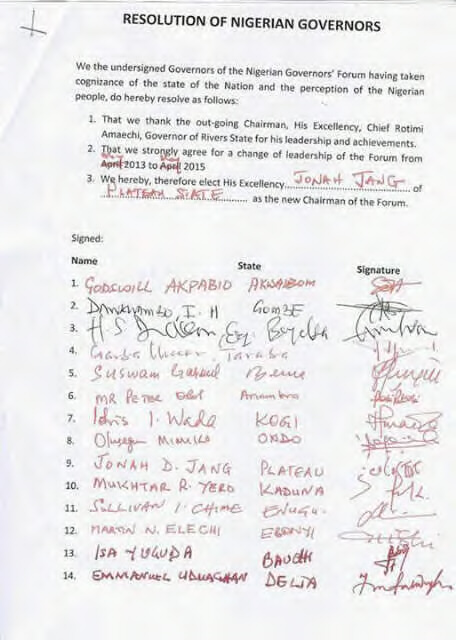 RESOLUTION OF NIGERIAN GOVERNORS
We the undersigned Governors of the Nigerian Governors' Forum having taken
cognizance of the state of the Nation and the perception of the Nigerian
people, do hereby resolve as follows:
1. That we thank the out-going Chairman, His Excellency, Chief Rotimi
Amaechi, Governor of Rivers State for his leadership and achievements.
2. That we strongly agree for a change of leadership of the Forum from
May May
April 2013 to April 2015
3. We hereby, therefore elect His Excellency JONAH JANG of
PLATEAU STATE as the new Chairman of the Forum.
Signed:
Name State Signature
1. GODSWILL AKPABIO AKWAIBOM
2. DANKWAMBO I. H GOMBE
3. H S
4. Garba Taraba
5. SUSWAM Gabriel Benue
6. MR PETER OBI Anambra
7. Idris I. Wada KOGI
8. Olusegun MIMIKO ONDO
9. JONAH D. JANG PLATEAU
10. MUKHTAR R. YERO KADUNA
11. SULLIVAN I. CHIME ENUGU
12. MARTIN N. ELECHI EBONYI
13. ISA YUGUDA BAUCHI
14. EMMANUEL UDUAGHAN DELTA